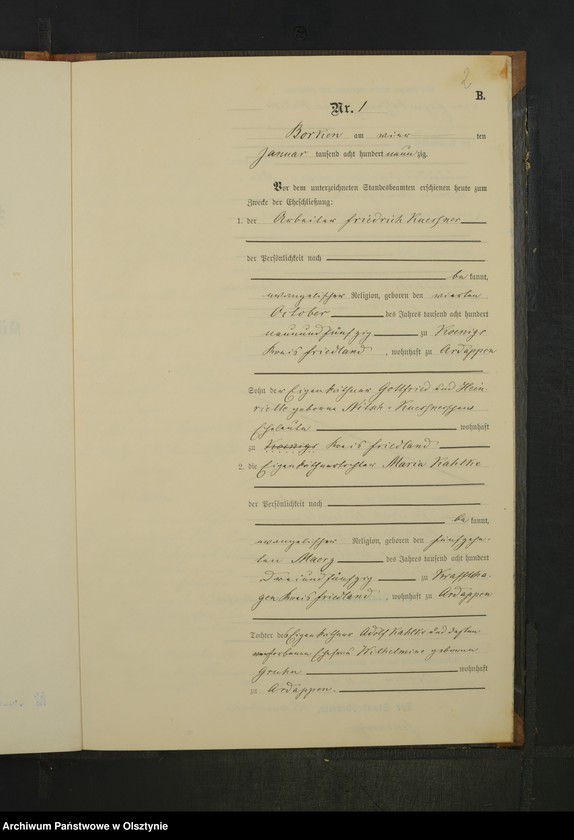 2
B.
Nr. 1
Borken am vier ten
Januar tausend acht hundert neun zig.
Vor dem unterzeichneten Standesbeamten erschienen heute zum
Zwecke der Eheschließung:
1. der Arbeiter Friedrich Kaessner
der Persönlichkeit nach
be kannt,
evangelischer Religion, geboren den vierten
October des Jahres tausend acht hundert
neunundfünfzig zu Koenigs
Kreis Friedland, wohnhaft zu Ardappen
Sohn der Eigenkäthner Gottfried und Hein-
riette geborne Kaessnerschen
Eheleute wohnhaft
zu Kreis Friedland
2. die Eigenkäthnertochter Maria Kahlke
der Persönlichkeit nach
be kannt,
evangelischer Religion, geboren den fünfzehn-
ten Maerz des Jahres tausend acht hundert
dreiundfünfzig zu Krafftsha-
gen Kreis Friedland, wohnhaft zu Ardappen
Tochter des Eigenkäthner Adolf Kahlke und dessen
verstorbenen Ehefrau Wilhelmine geborenen
Gruhn wohnhaft
zu Ardappen.
Archiwum Państwowe w Olsztynie